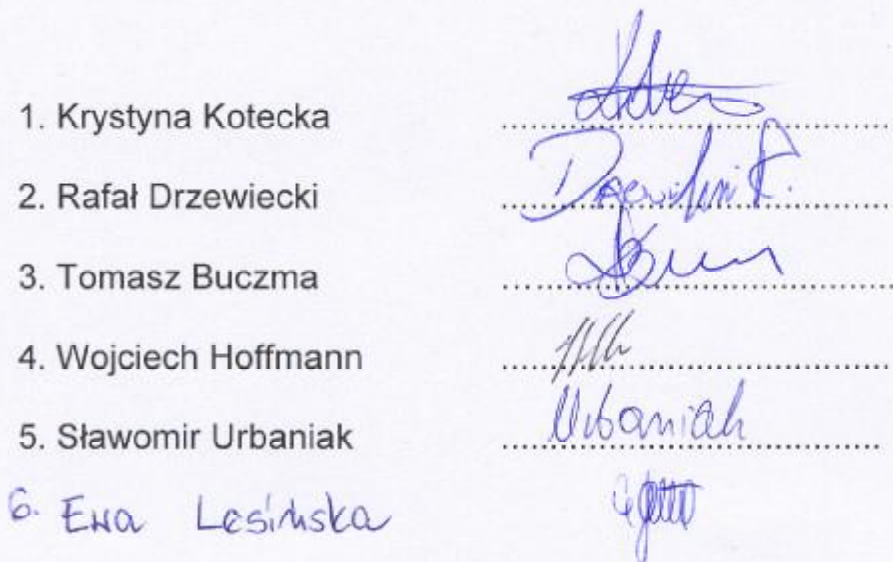 1. Krystyna Kotecka
2. Rafał Drzewiecki
3. Tomasz Buczma
4. Wojciech Hoffmann
5. Sławomir Urbaniak Urbaniak
6. Ewa Lesińska